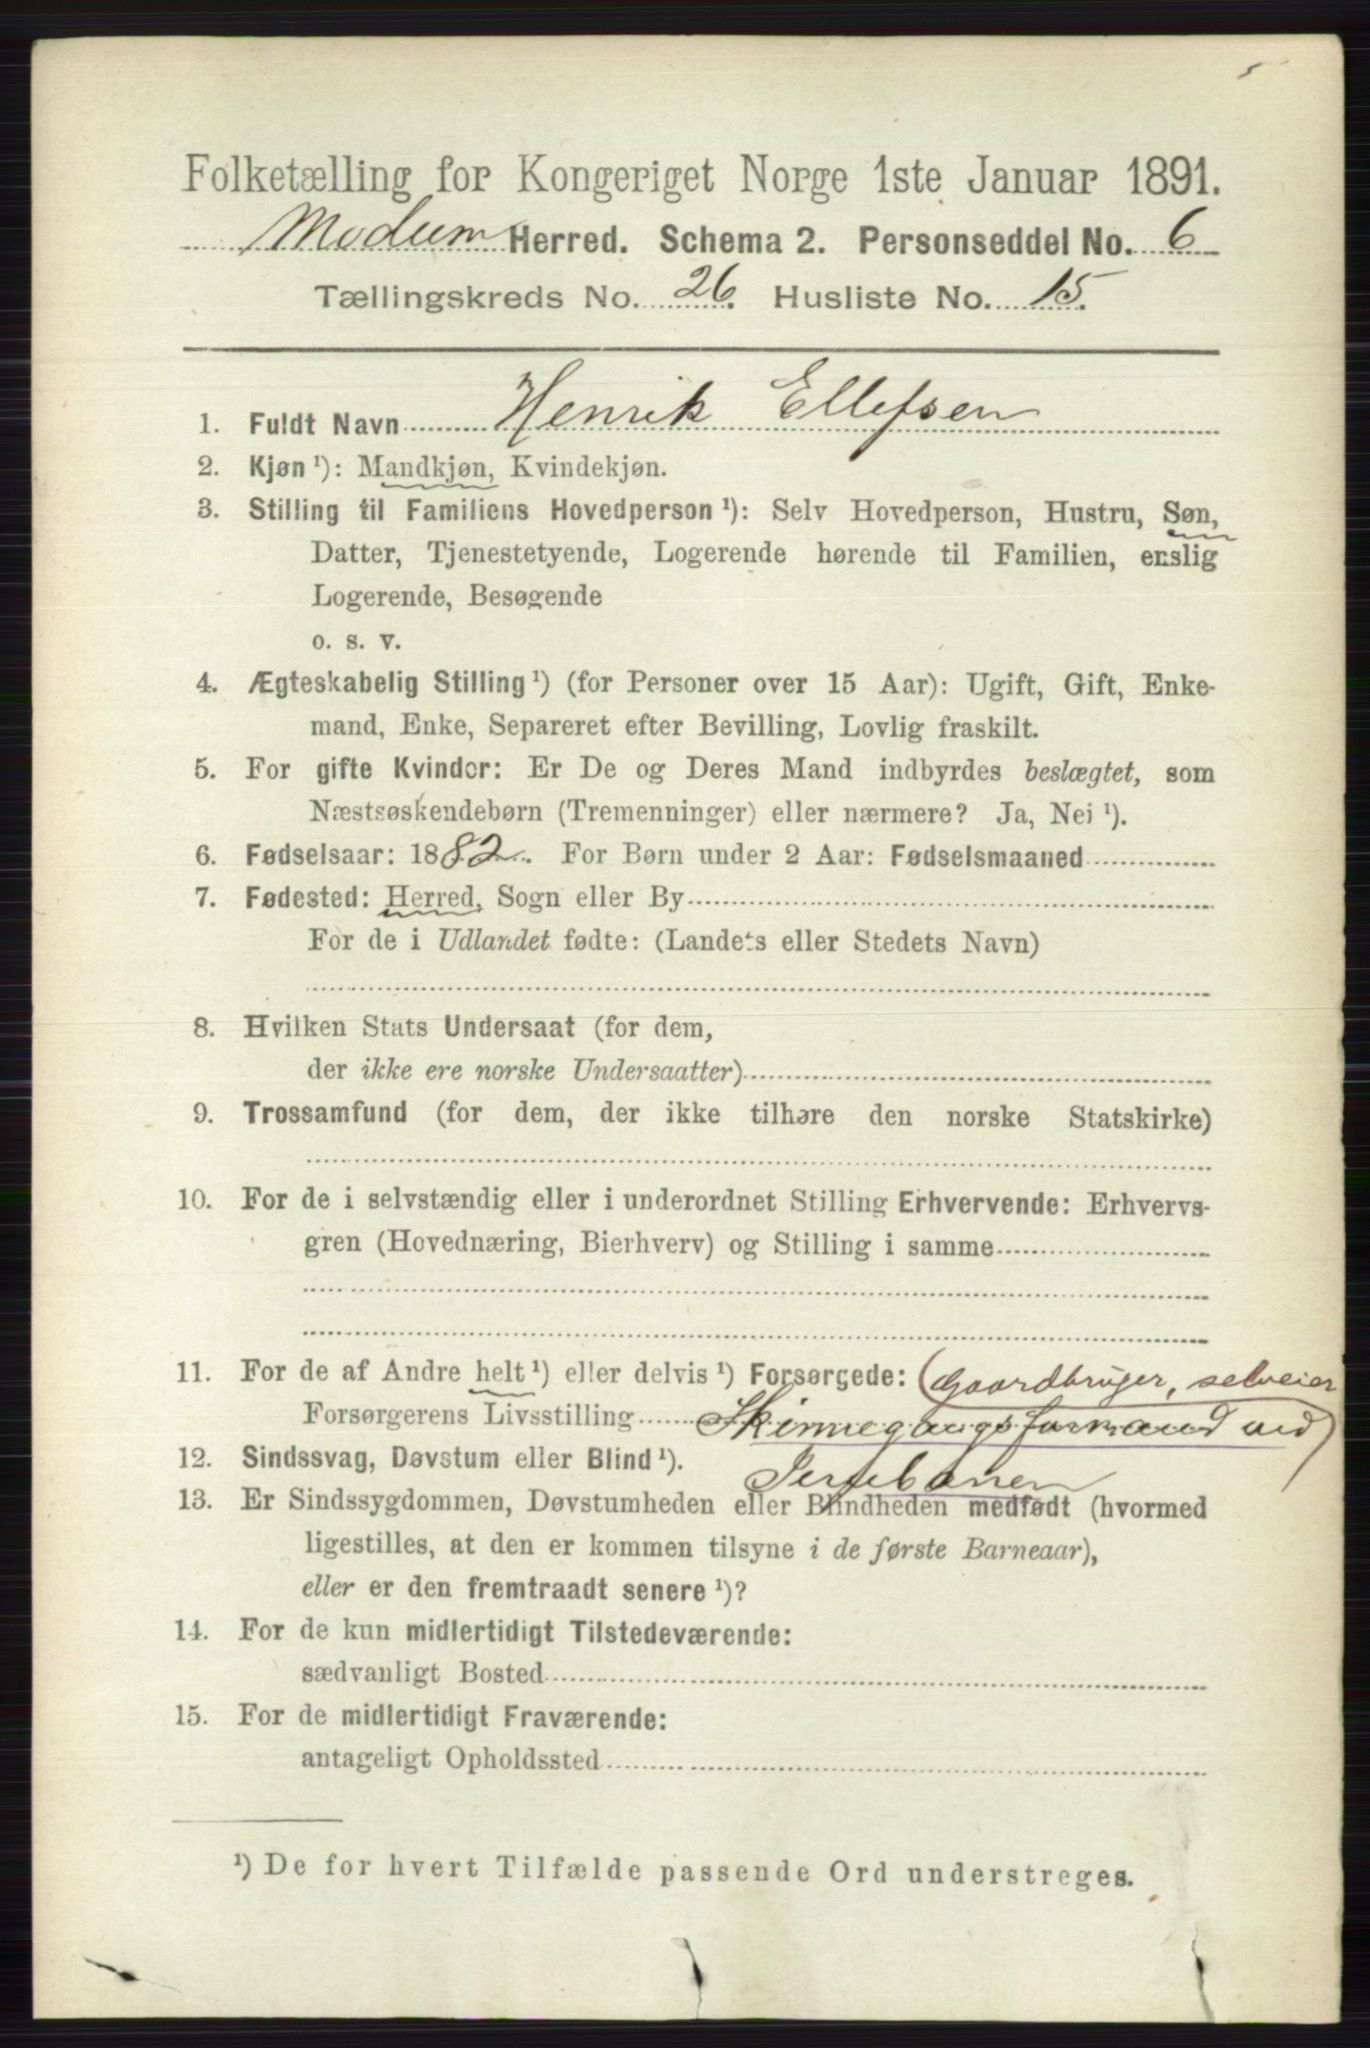 5
Folketælling for Kongeriget Norge 1ste Januar 1891.
Modum Herred. Schema 2. Personseddel No. 6
Tællingskreds No. 26. Husliste No. 15.
1. Fuldt Navn Henrik Ellefsen
2. Kjøn ¹): Mandkjøn, Kvindekjøn.
3. Stilling til Familiens Hovedperson ¹): Selv Hovedperson, Hustru, Søn,
Datter, Tjenestetyende, Logerende hørende til Familien, enslig
Logerende, Besøgende
o. s. v.
4. Ægteskabelig Stilling ¹) (for Personer over 15 Aar): Ugift, Gift, Enke-
mand, Enke, Separeret efter Bevilling, Lovlig fraskilt.
5. For gifte Kvinder: Er De og Deres Mand indbyrdes beslægtet, som
Næstsøskendebørn (Tremenninger) eller nærmere? Ja, Nei ¹).
6. Fødselsaar: 1882. For Børn under 2 Aar: Fødselsmaaned
7. Fødested: Herred, Sogn eller By
For de i Udlandet fødte: (Landets eller Stedets Navn)
8. Hvilken Stats Undersaat (for dem,
der ikke ere norske Undersaatter)
9. Trossamfund (for dem, der ikke tilhøre den norske Statskirke)
10. For de i selvstændig eller i underordnet Stilling Erhvervende: Erhvervs-
gren (Hovednæring, Bierhverv) og Stilling i samme
11. For de af Andre helt ¹) eller delvis ¹) Forsørgede: (Gaardbruger, selveier
Forsørgerens Livsstilling Skinnegangsformand ved)
12. Sindssvag, Døvstum eller Blind ¹). Jernbanen
13. Er Sindssygdommen, Døvstumheden eller Blindheden medfødt (hvormed
ligestilles, at den er kommen tilsyne i de første Barneaar),
eller er den fremtraadt senere ¹)?
14. For de kun midlertidigt Tilstedeværende:
sædvanligt Bosted
15. For de midlertidigt Fraværende:
antageligt Opholdssted
¹) De for hvert Tilfælde passende Ord understreges.